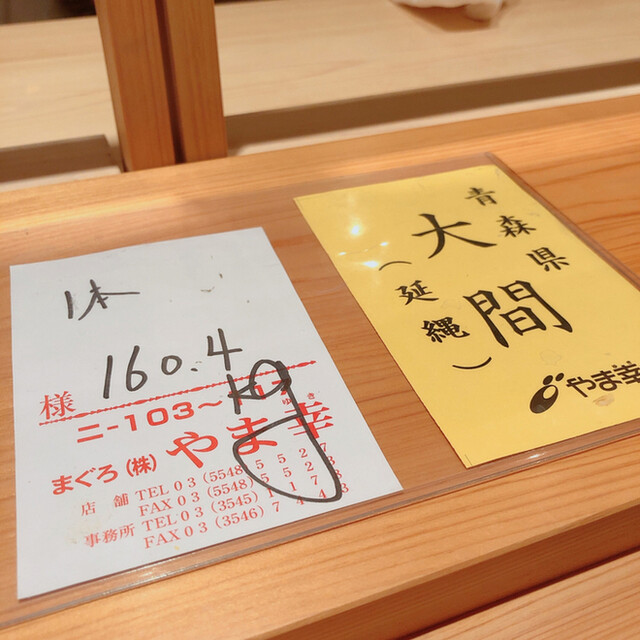 1本
160.4
kg
様
ニ-103~
まぐろ(株) やま幸
ゆき
店舗 TEL 03 (5548)
FAX 03 (5548)
事務所 TEL 03 (3545)
FAX 03 (3546)
青森県
大間
(延縄)
やま幸